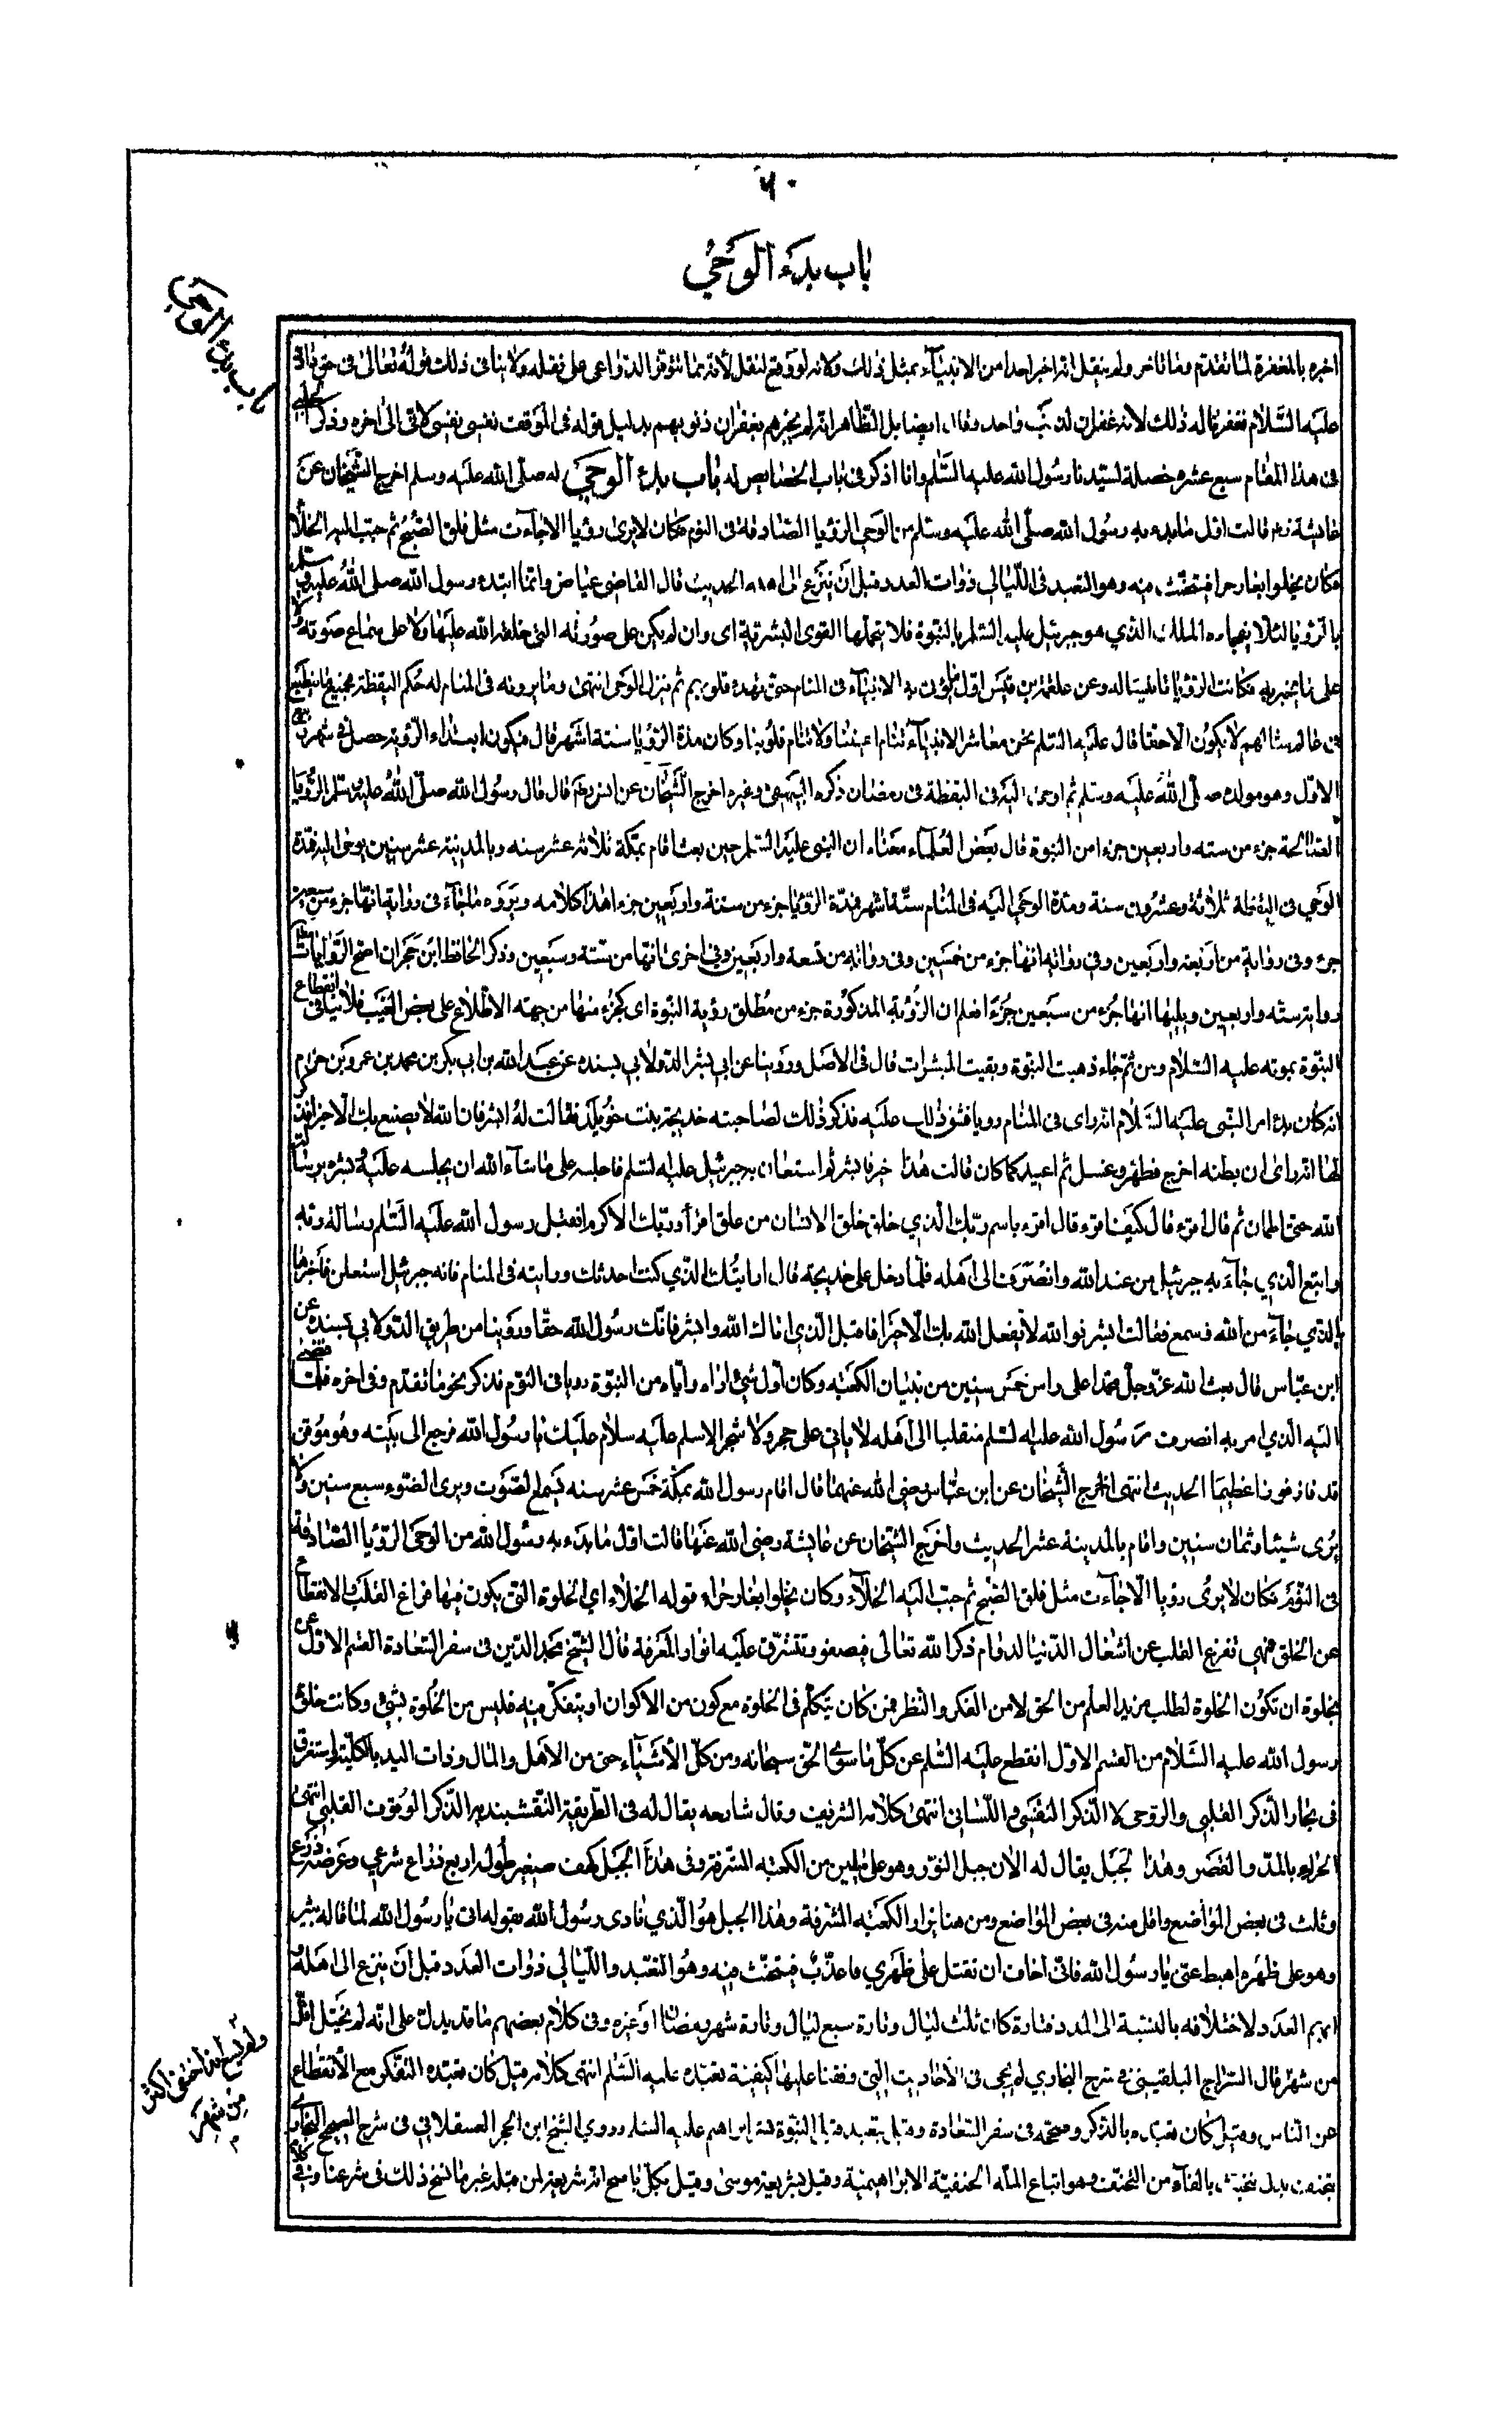 ٦٠
باب بدء الوحي
باب بدء الوحي
اخبره بالمغفرة لما تقدم وما تاخر ولم ينقل انه اخبر احدا من الانبيآء بمثل ذلك ولانه لو وقع لنقل لأنه مما تتوفر الدواعى على نقله ولا ينافى ذلك قوله تعالى فى حق
عليه السلام فغفرنا له ذلك لانه غفران لذنب واحد وقال ايضا بل الظاهر انه لم يخبرهم بغفران ذنوبهم بدليل قوله فى الموقف نفسى نفسى الى اخره وذكر
فى هذا المقام سبع عشره خصلة لسيدنا رسول الله عليه السلم وانا اذكر فى باب الخصايص له باب بدء الوحي له صلى الله عليه وسلم اخرج الشيخان عن
عايشة قالت اول ما بدء به رسول الله صلى الله عليه وسلم من الوحي الرؤيا الصادقة فى النوم فكان لا يرى رؤيا الا جاءت مثل فلق الصبح ثم حبب اليه الخلاء
فكان يخلوا بغار حرا فيتحنث فيه وهو التعبد فى الليالي ذوات العدد قبل ان ينزع الى اهله الحديث قال القاضى عياض وانما ابتدء رسول الله صلى الله عليه وسلم
بالرؤيا لئلا يفجاءه الملك الذي هو جبرئيل عليه السلم بالنبوة فلا يتحملها القوى البشرية اى وان لم يكن على صورته التى خلقه الله عليها ولا على سماع صوته ولا
على ما يخبر به فكانت الرؤيا تانيسا له وعن علقمة بن قيس اول ما يؤتى به الانبيآء فى المنام حتى تهدء قلوبهم ثم ينزل الوحى انتهى وما يرونه فى المنام له حكم اليقظة فجميع ما ينطبع
فى عالم مثالهم لا يكون الا حقا قال عليه السلم نحن معاشر الانبياء تنام اعيننا ولا تنام قلوبنا وكان مدة الرؤيا ستة اشهر قال فيكون ابتداء الرؤية حصل فى شهر ربيع
الاول وهو مولده صلى الله عليه وسلم ثم اوحى اليه فى اليقظة فى رمضان ذكره البيهقى وغيره اخرج الشيخان عن انس قال قال رسول الله صلى الله عليه وسلم الرؤيا
الصالحة جزء من سته واربعين جزءا من النبوة قال بعض العلماء معناه ان النبى عليه السلم حين بعث اقام بمكة ثلاثه عشر سنه وبالمدينة عشر سنين يوحى اليه فمدة
الوحي فى اليقظة ثلاثة وعشرون سنة ومدة الوحي اليه فى المنام ستة اشهر فمدة الرؤيا جزء من ستة واربعين جزء اهذا كلامه ويروه ما جآء فى رواية انها جزء من سبعين
جزء وفى رواية من اربعه واربعين وفى رواية انها جزء من خمسين وفى رواية من تسعة واربعين وفى اخرى انها من ستة وسبعين وذكر الحافظ ابن حجر ان اصح الروايات
رواية سته واربعين ويليها انها جزء من سبعين جزءًا فعلم ان الرؤية المذكورة جزء من مطلق رؤية النبوة اى كجزء منها من جهة الاطلاع على بعض الغيب فلا ينافى انقطاع
النبوة بموته عليه السلام ومن ثم جاء ذهبت النبوة وبقيت المبشرات قال فى الاصل وروينا عن ابى بشر الدولابي بسنده عن عبد الله بن ابى بكر بن محمد بن عمرو بن حزم
انه كان بدء امر النبى عليه السلام انه راى فى المنام رويا فشق ذلك عليه فذكر ذلك لصاحبته خديجة بنت خويلد فقالت له ابشر فان الله لا يصنع بك الا خيرا فذكر
لها انه راى ان بطنه اخرج فطهر وغسل ثم اعيد كما كان قالت هذا خير فابشر ثم استعلن به جبرئيل عليه السلم فاجلسه على ما شاء الله ان يجلسه عليه وبشره برسالة
الله حتى اطمان ثم قال اقرء قال كيف اقرء قال اقرء باسم ربك الذي خلق خلق الانسان من علق اقرأ وربك الاكرم فقبل رسول الله عليه السلم رسالة ربه
واتبع الذي جآء به جبرئيل من عند الله وانصرف الى اهله فلما دخل على خديجة قال ارايتك الذي كنت احدثك ورايته فى المنام فانه جبرئيل استعلن فاخبرها
بالذي جآء من الله فسمع فقالت ابشر فوالله لا يفعل الله بك الا خيرا فاقبل الذي اتاك الله وابشر فانك رسول الله حقا وروينا من طريق الدولابي بسنده عن
ابن عباس قال بعث الله عز وجل محمدا على راس خمس سنين من بنيان الكعبه وكان اول شئ اراه واياه من النبوة رويا فى النوم فذكر نحو ما تقدم وفى اخره فلما قضى
اليه الذي امر به انصرف رسول الله عليه السلم منقلبا الى اهله لا ياتى على حجر ولا شجر الا سلم عليه سلام عليك يا رسول الله فرجع الى بيته وهو موقن
قد فاز فوزا عظيما الحديث انتهى اخرج الشيخان عن ابن عباس رضي الله عنهما قال اقام رسول الله بمكة خمس عشر سنه يسمع الصوت ويرى الضوء سبع سنين ولا
يرى شيئا وثمان سنين واقام بالمدينة عشر الحديث واخرج الشيخان عن عايشة رضي الله عنها قالت اول ما بدء به رسول الله من الوحى الرؤيا الصادقة
فى النوم فكان لا يرى رويا الا جاءت مثل فلق الصبح ثم حبب اليه الخلآء وكان يخلوا بغار حراء قوله الخلاء اي الخلوة التى يكون فيها فراغ القلب الانقطاع
عن الخلق فهي تفرغ القلب عن اشغال الدنيا لدوام ذكر الله تعالى فيصفو وتشرق عليه انوار المعرفة قال الشيخ مجد الدين فى سفر السعادة القسم الاول عن
بخلوة ان تكون الخلوة لطلب مزيد العلم من الحق لا من الفكر والنظر فمن كان يتكلم فى الخلوة مع كون من الاكوان او يتفكر فيه فليس من الخلوة بشئ وكانت خلوة
رسول الله عليه السلام من القسم الاول انقطع عليه السلم عن كل ما سوى الحق سبحانه ومن كل الأشيآء حتى من الاهل والمال وذات اليد بالكلية واستغرق
فى بحار الذكر القلبى والروحى لا الذكر النفسى واللسانى انتهى كلامه الشريف وقال شارحه يقال له فى الطريقة النقشبنديه الذكر الوقوف القلبي انتهى
الحراء بالمد والقصر وهذا الجبل يقال له الان جبل النور وهو على ميلين من الكعبه المشرفة وفى هذا الجبل كهف صغير طوله اربع ذراع شرعي وعرضه ذرع
وثلث فى بعض المواضع واقل منه فى بعض المواضع ومن هنا يزار الكعبه المشرفة وهذا الجبل هو الذي نادى رسول الله بقوله الى يا رسول الله لما قاله ثبير
وهو على ظهره اهبط عنى يا رسول الله فانى اخاف ان تقتل على ظهري فاعذب فيتحنث فيه وهو التعبد والليالي ذوات العدد قبل ان ينزع الى اهله
ابهم العدد لاختلافه بالنسبة الى المدد فتارة كان ثلث ليال وتارة سبع ليال وتارة شهر رمضان او غيره وفى كلام بعضهم ما قد يدل على انه لم يختل اقل
من شهر قال السراج البلقينى فى شرح البخاري لم يجى فى الاحاديث التى وقفنا عليها كيفية تعبده عليه السلم انتهى كلامه قيل كان تعبده التفكر مع الأنقطاع
عن الناس وقيل كان تعبده بالذكر وصححه فى سفر السعادة وقيل يتعبد قبل النبوة ابراهيم عليه السلم وروي الشيخ ابن الحجر العسقلاني فى شرح الصحيح البخاري
يتحنف بدل يتحنث بالفآء من التحنف وهو اتباع الملة الحنفية الابراهيمية وقيل بشريعة موسى وقيل بكل ما صح انه شريعة لمن قبله غير ما نسخ ذلك فى شرعنا وفى كلام
ولم يصح انه اختلى اكثر
من شهر